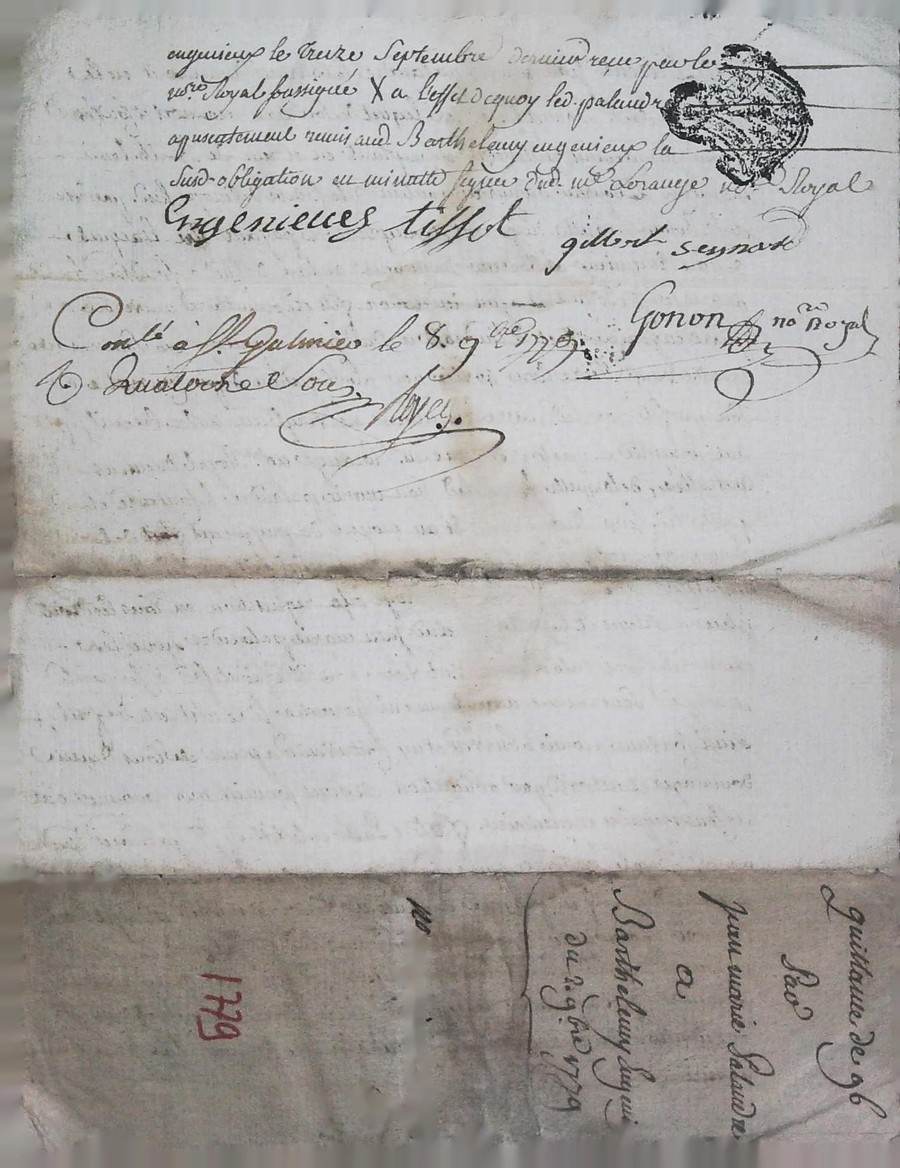 engenieux le Treize Septembre dernier reçu par le
no.re Royal sussigné X a l'effet de quoy led. palandre
a presentement remis aud. Barthelemy engenieux la
Susd. obligation en minutte signée dud. me Lorange no.re Royal
Engenieues tissot gilbert seynard
Gonon no.re Royal
Conlé à St. Galmier le 8. 9bre 1779.
R Quatorze Sous
quittance de 96
Par
jean marie Palandre
a
Barthelemy Engeni
du 2. 9bre 1779
no
1779